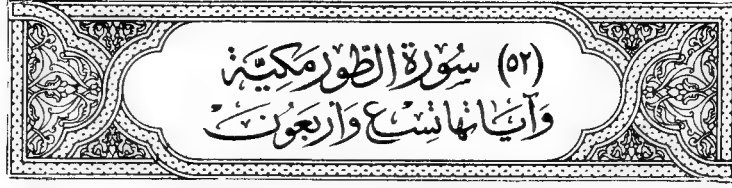 (٥٢) سُورَة الطُّور مَكِيَّة
وَآيَاتها تِسْع وَأَربَعُون